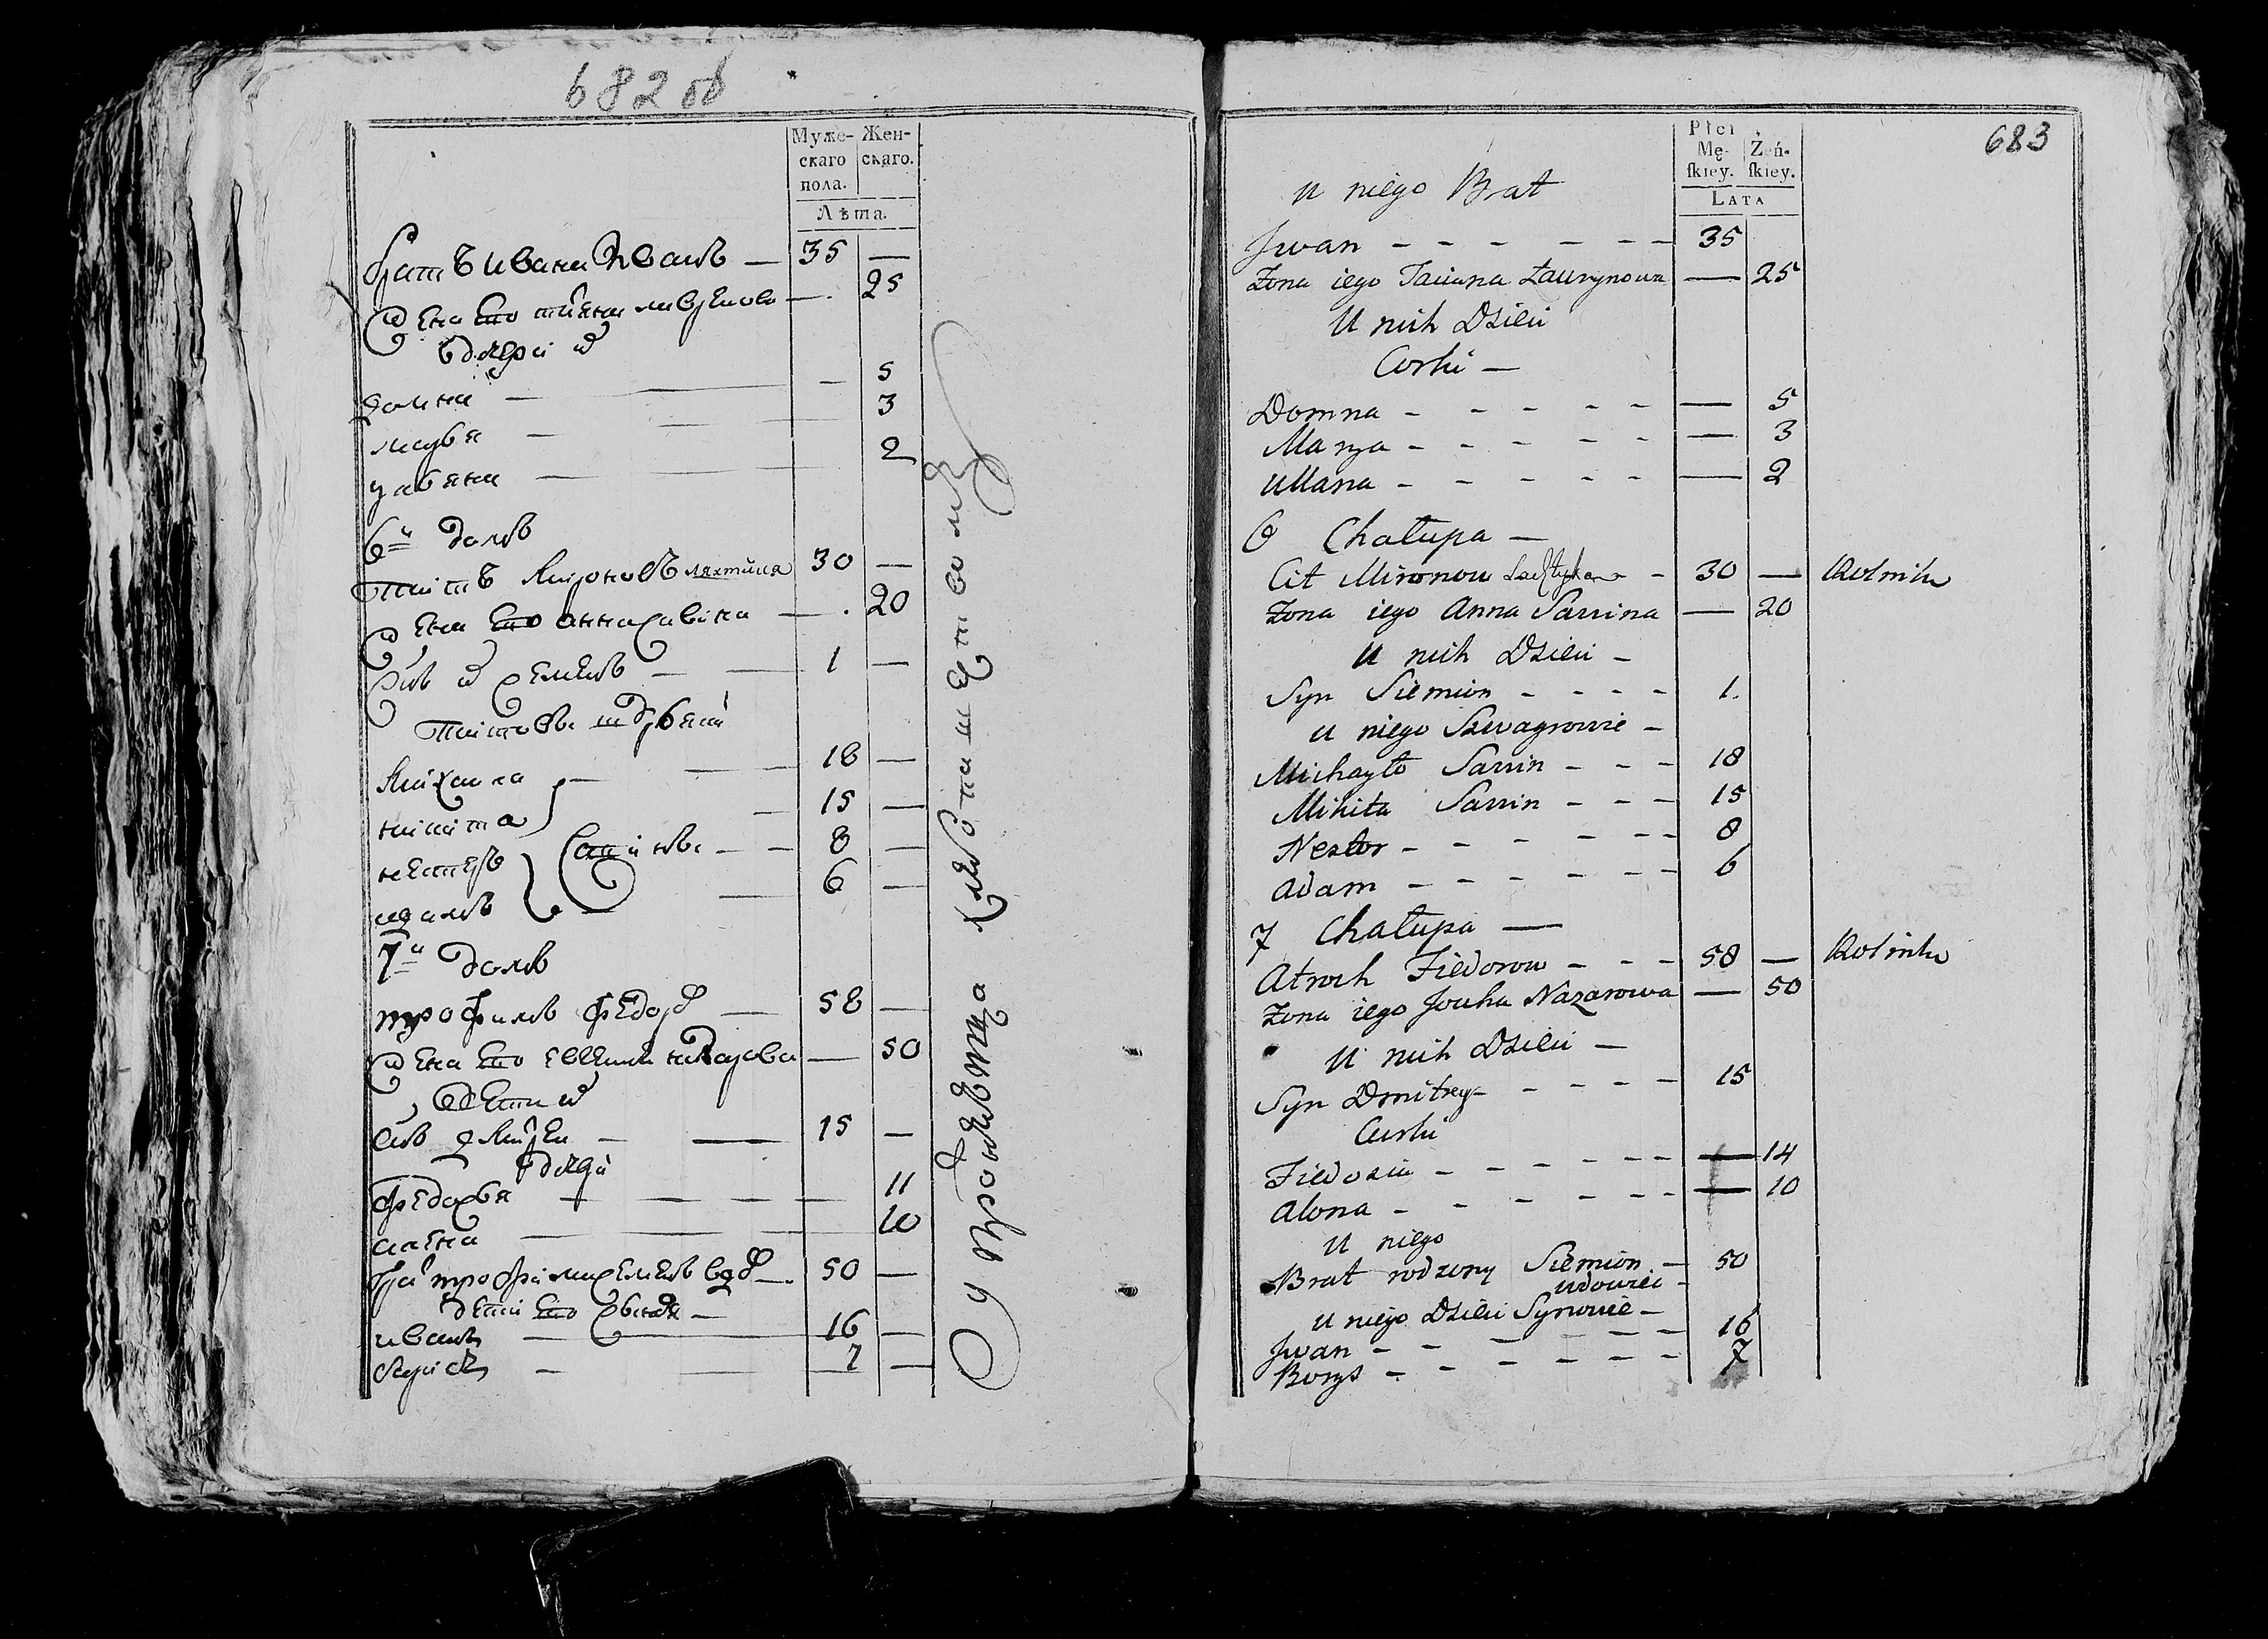 682 об
Муже-
скаго
пола.
Жен-
скаго.
Лѣта.
братъ иванъ Ивановъ — 35 —
жена его татьяна лавренова — 25
дочери их
домна — 5
марья — 3
ульяна — 2
6й домъ
титъ Мироновъ 30 —
жена его анна савина — 20
сын их семенъ — 1 —
титовы шурья
михаила — 18 —
никита — 15 —
нестеръ — 8 —
адамъ — 6 —
Савины
7й домъ
трофимъ федоров — 58 —
жена его назарова — 50
дети их
сын дмитрей — 15 —
дочери
федосья — 11
алена — 10
брат трофима семенъ вдов — 50 —
дети его сыновья —
иванъ — 16 —
борисъ — 7 —
683
Płci
Mę-
ſkiey.
Żeń-
ſkiey.
LATA
u niego Brat
Jwan - - - - - - 35
Żona iego Taciana Ławrynowa — 25
U nich Dzieci
Corki —
Domna - - - - - — 5
Marya - - - - - — 3
Ullana - - - - - — 2
6 Chałupa —
Cit Mironow - 30 — Rolnik
Żona iego Anna Sawina — 20
U nich Dzieci -
Syn Siemion - - - - 1.
u niego Szwagrowie -
Michayło Sawin - - - 18
Mikita Sawin - - - 15
Nestor - - - - - - 8
Adam - - - - - - 6
7 Chałupa —
Atroch Fiedorow - - - 58 — Rolnik
Żona iego Nazarowa — 50
U nich Dzieci —
Syn Dmitrey - - - - 15
Curki
Fiedosia - - - - - - — 14
Alona - - - - - - — 10
U niego
Brat rodzony Siemion - 50
wdowiec -
u niego Dzieci Synowie -
Jwan - - - - - - 16
Borys - - - - - - 7